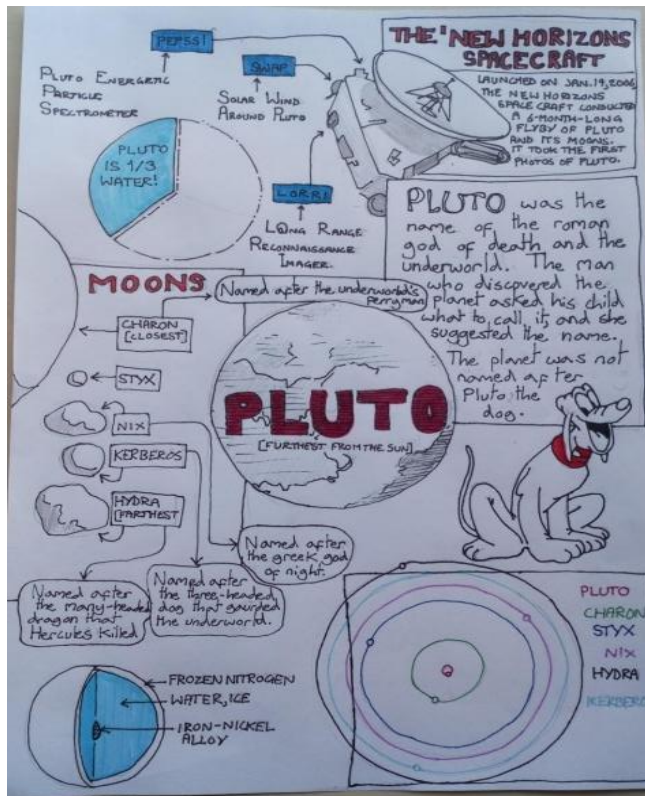 PEPSSI
PLUTO ENERGETIC
PARTICLE
SPECTROMETER
SWAP
SOLAR WIND
AROUND PLUTO
LORRI
LONG RANGE
RECONNAISSANCE
IMAGER.
THE NEW HORIZONS
SPACECRAFT
LAUNCHED ON JAN.19,2006,
THE NEW HORIZONS
SPACE CRAFT CONDUCTED
A 6-MONTH-LONG
FLYBY OF PLUTO
AND ITS MOONS.
IT TOOK THE FIRST
PHOTOS OF PLUTO.
PLUTO
IS 1/3
WATER!
PLUTO was the
name of the roman
god of death and the
underworld. The man
who discovered the
planet asked his child
what to call it, and she
suggested the name.
The planet was not
named after
Pluto the
dog.
MOONS
Named after the underworld's
ferryman
CHARON
[CLOSEST]
STYX
NIX
KERBEROS
HYDRA
[FARTHEST
PLUTO
[FURTHEST FROM THE SUN]
Named after
the greek god
of night.
Named after
the many-headed
dragon that
Hercules killed
Named after
the three-headed
dog that gaurded
the underworld.
FROZEN NITROGEN
WATER, ICE
IRON-NICKEL
ALLOY
PLUTO
CHARON
STYX
NIX
HYDRA
KERBEROS